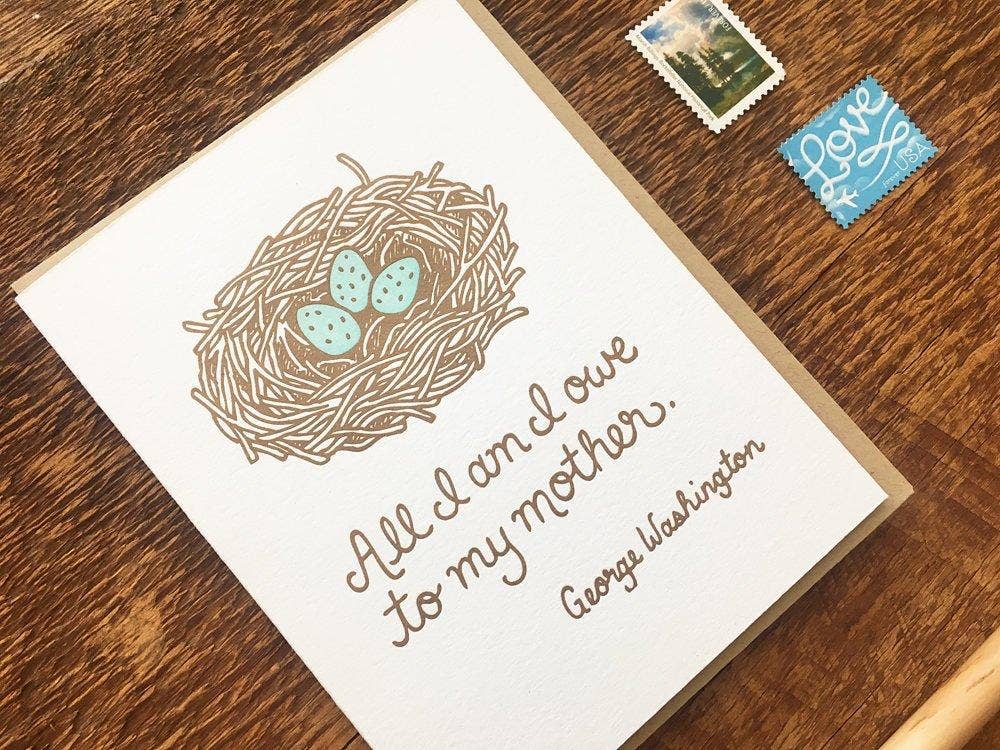 All I am I owe
to my mother.
George Washington
Love
forever USA